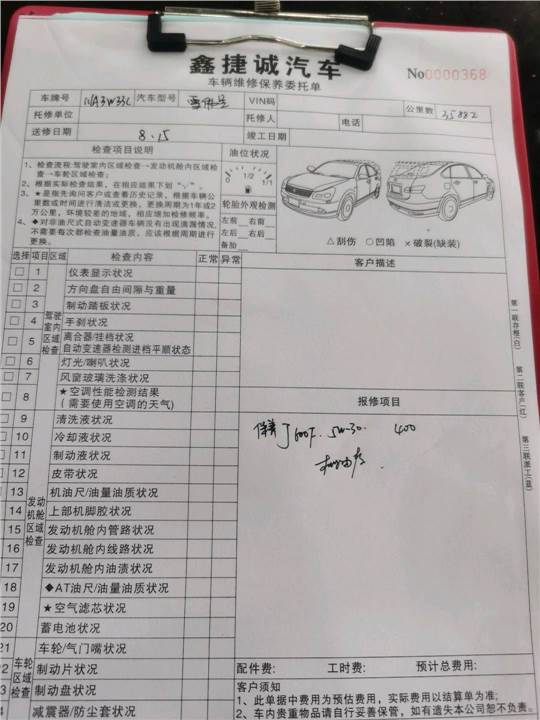 鑫捷诚汽车
车辆维修保养委托单
No0000368
车牌号 汽车型号 VIN码 公里数 35882
托修单位 托修人 电话
送修日期 8.15 竣工日期
检查项目说明
1、检查流程:驾驶室内区域检查→发动机舱内区域检查→车轮区域检查;
2、根据实际检查结果,在相应结果下划“√”。
3、★是指先询问客户或查看历史记录,根据车辆公里数或时间进行清洁或更换。更换周期为1年或2万公里,环境较差的地域,相应增加检修频率。
4、◆对非油尺式自动变速器车辆没有出现渍漏情况,不需要每次都检查油量油质。应该根据周期进行更换。
油位状况
0 1/2 1/1
轮胎外观检测
左前 右前
左后 右后
备胎
△刮伤 ○凹陷 ×破裂(缺装)
选择 项目 区域 检查内容 正常 异常
客户描述
驾驶室内区域检查
1 仪表显示状况
2 方向盘自由间隙与重量
3 制动踏板状况
4 手刹状况
5 离合器/挂档状况
自动变速器检测进档平顺状态
6 灯光/喇叭状况
7 风窗玻璃洗涤状况
8 ★空调性能检测结果
(需要使用空调的天气)
报修项目
保养 5W-30. 400
发动机舱区域检查
9 清洗液状况
10 冷却液状况
11 制动液状况
12 皮带状况
13 机油尺/油量油质状况
14 上部机脚胶状况
15 发动机舱内管路状况
16 发动机舱内线路状况
17 发动机舱内油渍状况
18 ◆AT油尺/油量油质状况
19 ★空气滤芯状况
20 蓄电池状况
车轮区域检查
21 车轮/气门嘴状况
2 制动片状况
3 制动盘状况
4 减震器/防尘套状况
配件费: 工时费: 预计总费用:
客户须知
1、此单据中费用为预估费用,实际费用以结算单为准;
2、车内贵重物品请自行妥善保管,如有遗失本公司恕不负责。
第一联存根(白)
第二联客户(红)
第三联派工(蓝)